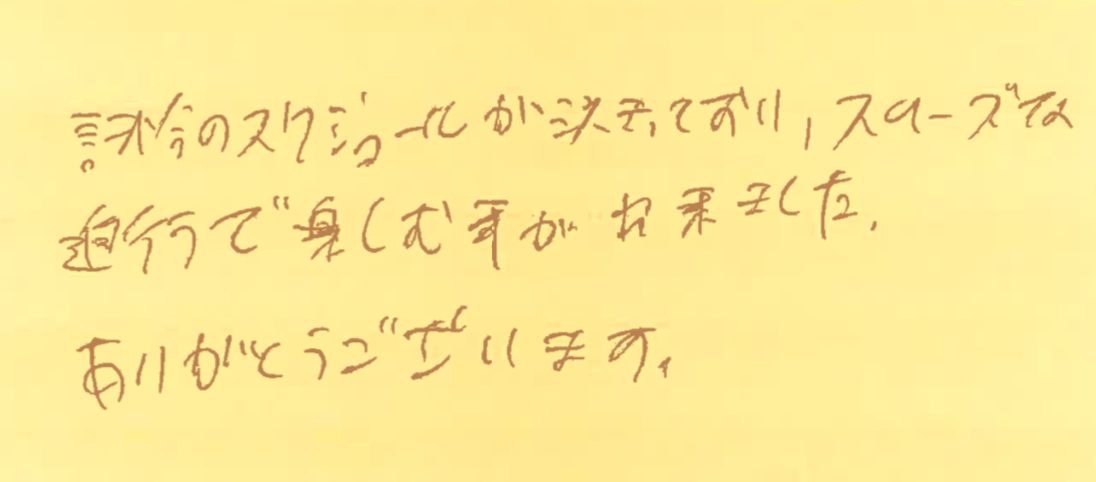 試合のスケジュールが決まっており、スムーズな
進行で楽しむ事が出来ました。
ありがとうございます。